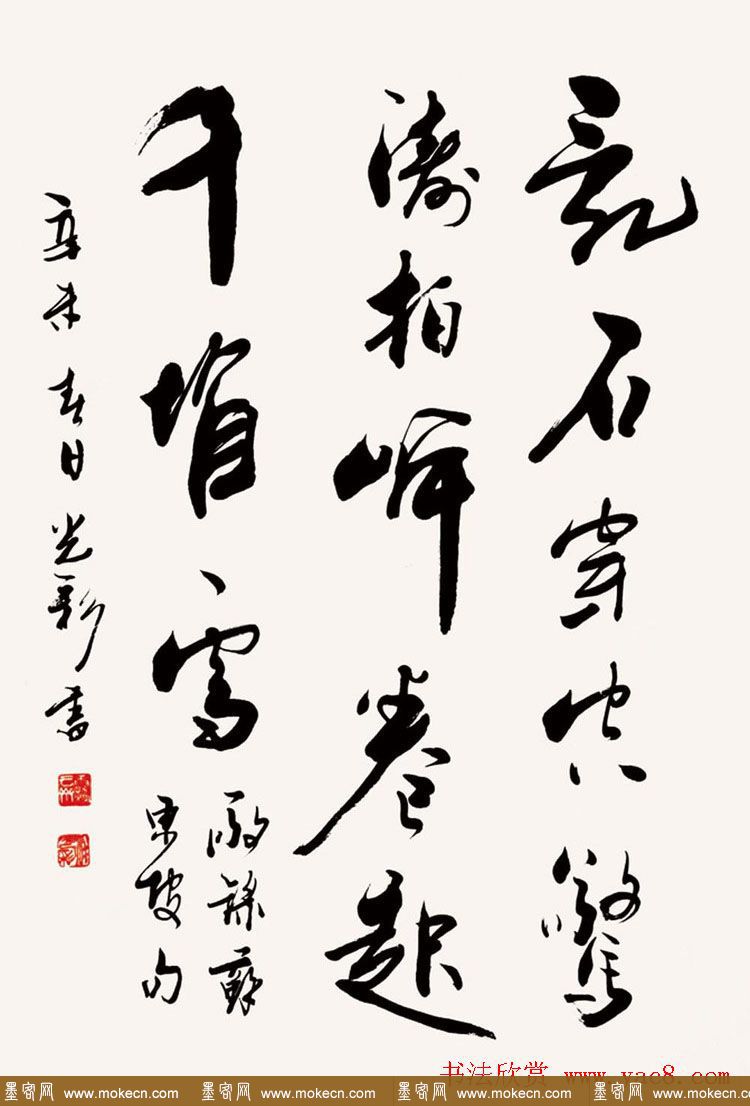 亂石穿空驚
濤拍岸卷起
千堆雪
敬錄蘇
東坡句
辛未春日光書
书法欣赏 www.yac8.com
墨客网 www.mokecn.com 墨客网 www.mokecn.com 墨客网 www.mokecn.com 墨客网 www.mokecn.com